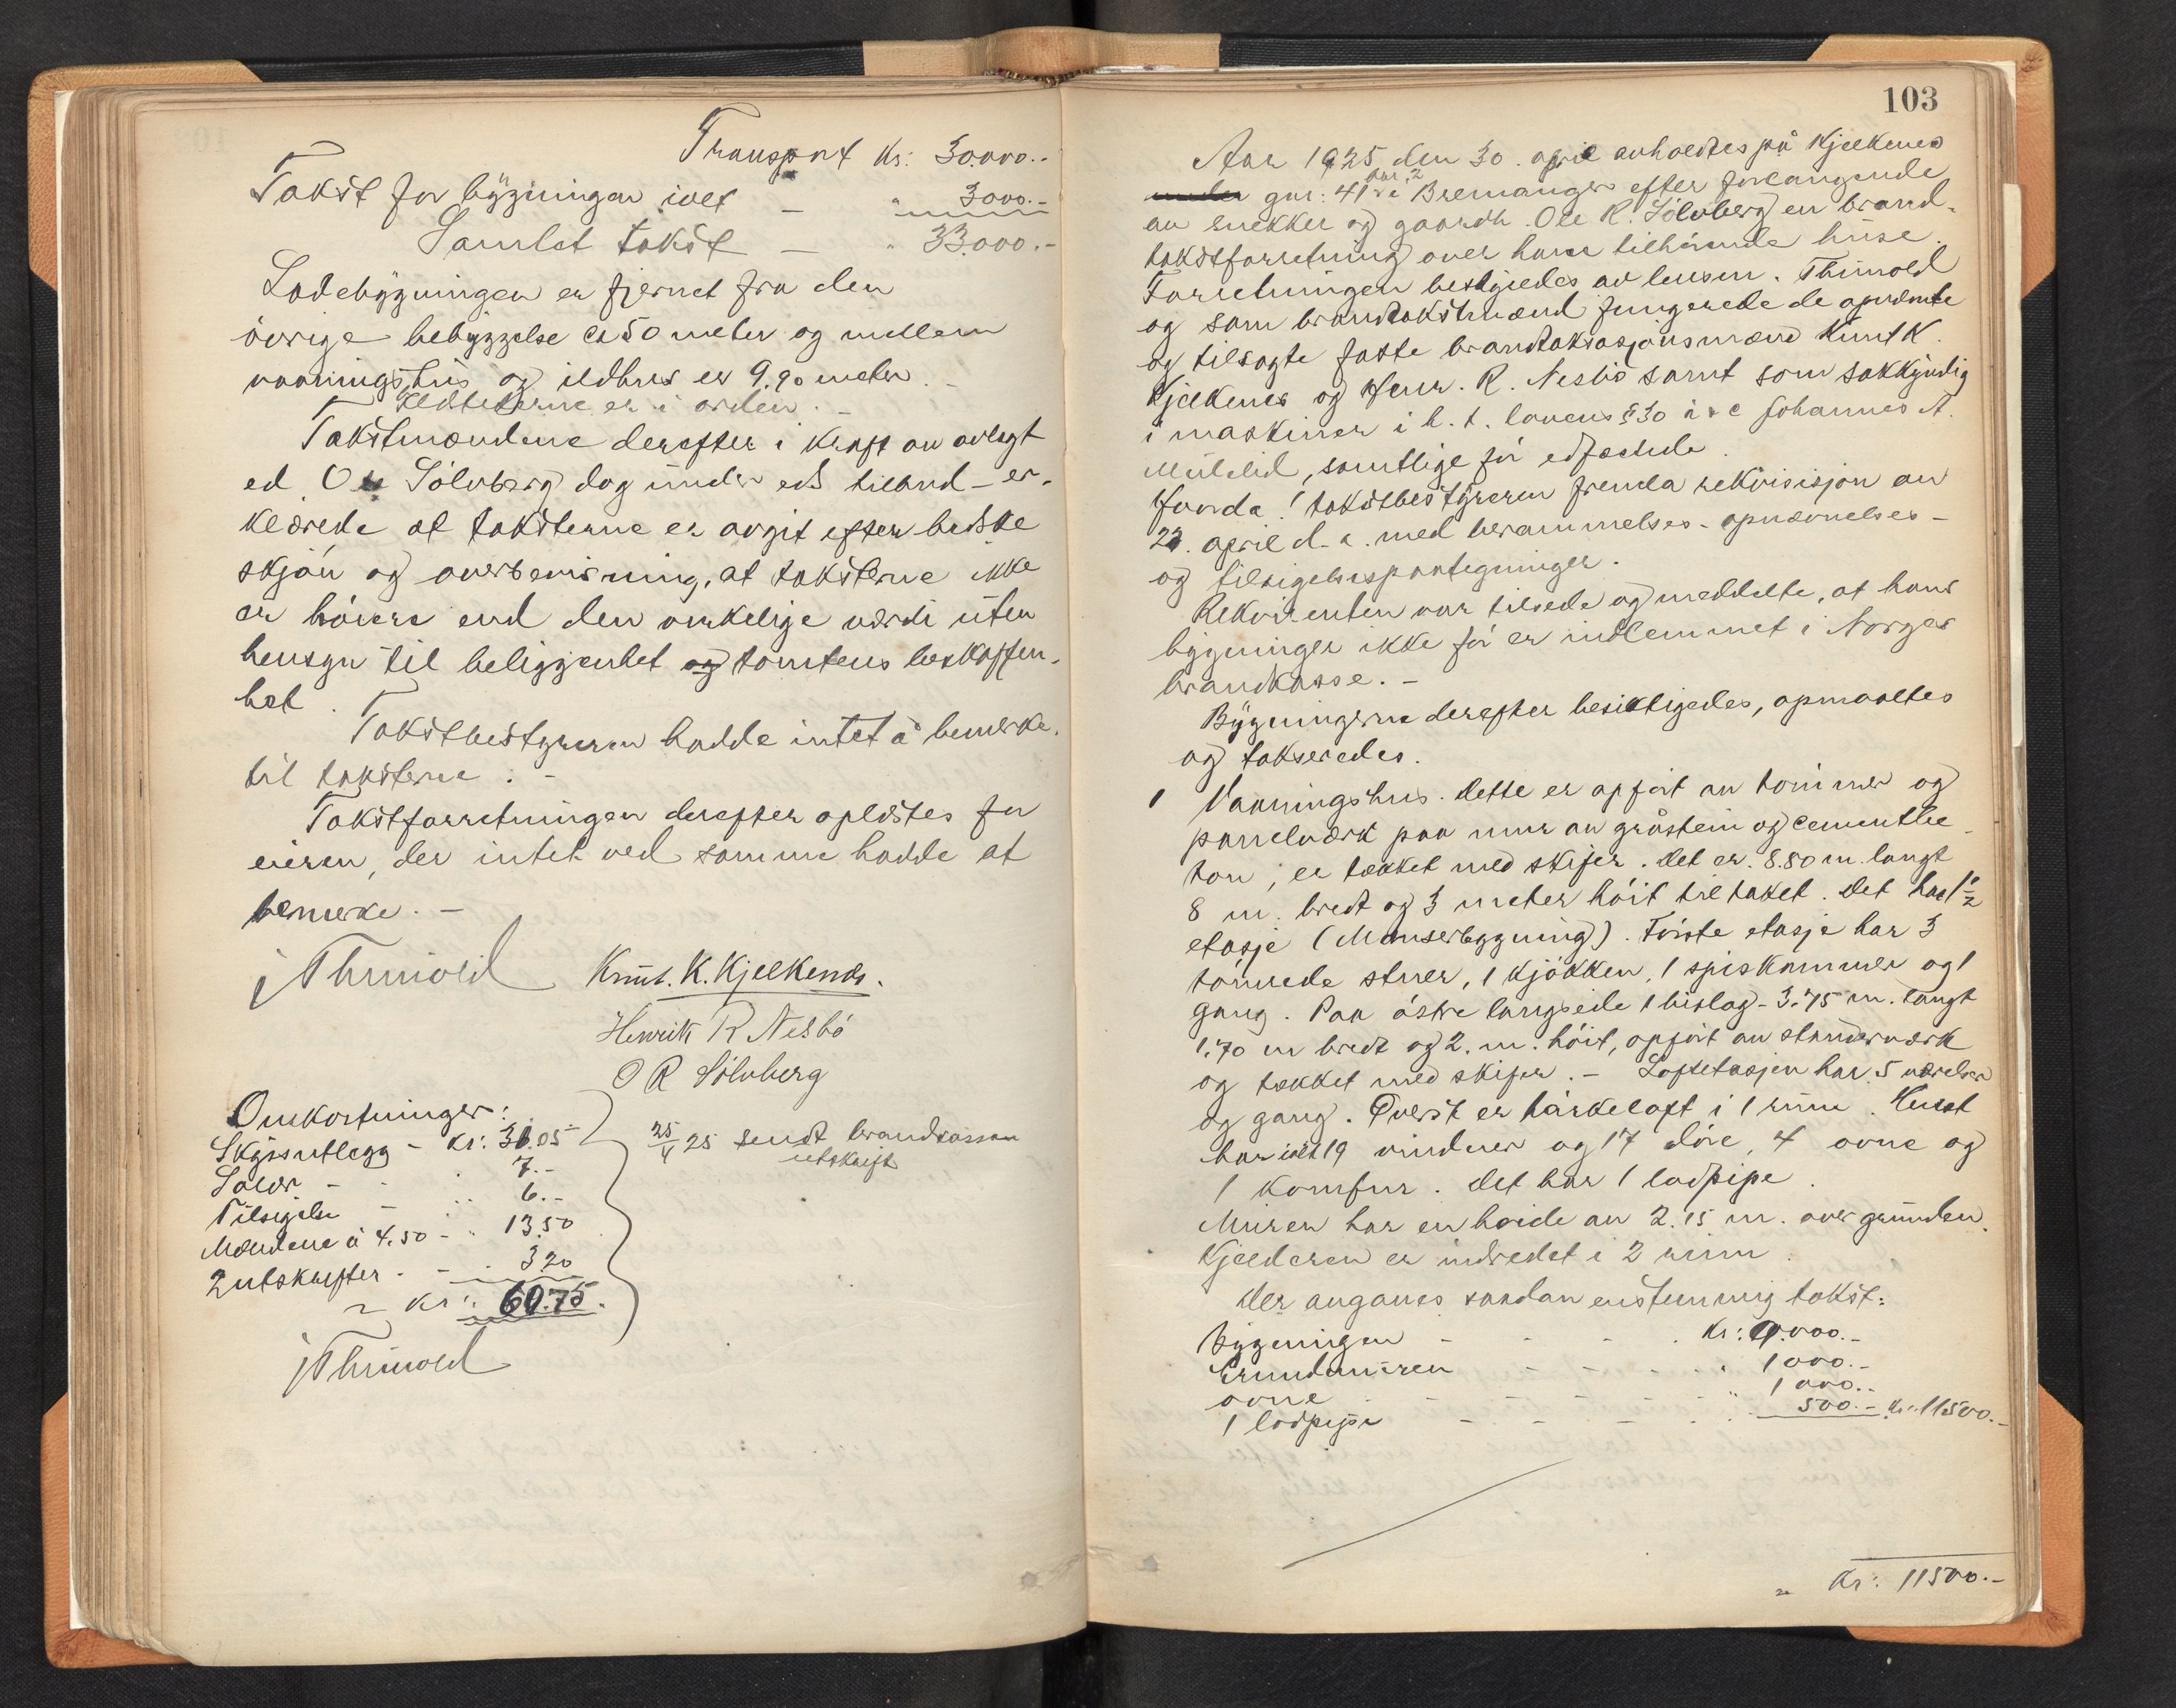 Transport Kr: 30.000.-
Takst for bygningen ialt - " 3000.-
Samlet takst - " 33.000.-
Ladebygningen er fjernet fra den
övrige bebyggelse ca 50 meter og mellem
vaaningshus og ildhus er 9.90 meter. -
Ildstederne er i orden. -
Takstmændene derefter i kraft av avlagt
ed, O. Sölvberg dog under ed tilbud - er-
klærede at taksterne er avgit efter bedste
skjön og overbevisning, at taksterne ikke
er höiere end den virkelige værdi uten
hensyn til beliggenhet og tomtens beskaffen-
het.
Takstbestyreren hadde intet å bemerke
til taksterne. -
Takstforretningen derefter oplæstes for
eieren, der intet ved samme hadde at
bemerke. -
J Thimold Knut. K. Kjelkenes.
Henrik R Nesbö
O R Sölvberg
Omkostninger:
Skyssutlegg - Kr: 31.05
Salær - - " 7.-
Tilsigelse - " 6.-
Mændene à 4.50 - " 13.50
2 utskrifter - - " 3.20
~ Kr: 60.75.
25/4 25 sendt brandkassen
utskrift
J Thimold
103
Aar 1925 den 30. april avholdtes på Kjelkenes
gnr: 41 bnr. 2 i Bremanger efter forlangende
av snekker og gaardb. Ole R. Sölvberg en brand-
takstforretning over ham tilhörende huse.
Forretningen bestyredes av lensm. Thimold
og som brandtakstmænd fungerede de opnævnte
og tilsagte faste brandtaksasjonsmænd Knut K.
Kjelkenes og Henr. R. Nesbö samt som sakkyndig
i maskiner i h. t. lovens § 30 a & c Johannes A.
Myklid, samtlige för edfæstede.
Fonda! takstbestyreren fremla rekvisisjon av
22. april d. a. med berammelses- opnævnelses-
og tilsigelsespaategninger.
Rekvirenten var tilstede og meddelte, at hans
bygninger ikke för er indlemmet i Norges
brandkasse. -
Bygningerne derefter besiktigedes, opmaaltes
og takseredes.
1 Vaaningshus. Dette er opfört av tömmer og
panelværk paa mur av gråstein og cementbe-
ton, er tækket med skifer. Det er 8.80 m. langt
8 m. bredt og 3 meter höit til taket. Det har 1 1/2
etasje (Manserbygning). Förste etasje har 3
tömrede stuer, 1 kjökken, 1 spiskammer og 1
gang. Paa östre langside 1 bislag - 3.75 m. langt
1.70 m bredt og 2. m. höit, opfört av stenderværk
og tækket med skifer. - Loftetasjen har 5 værelser
og gang. Överst er törkeloft i 1 rum. Huset
har ialt 19 vinduer og 17 döre, 4 ovne og
1 komfur. Det har 1 lodpipe.
Muren har en höide av 2.15 m. over grunden.
Kjelderen er indredet i 2 rum.
Der avgaves saadan enstemmig takst:
Bygningen - - - Kr: 9.000.-
Grundmuren - - - " 1000.-
ovne - - - - " 1000.-
1 lodpipe - - - - " 500.- Kr: 11500.-
~ Kr: 11500.-